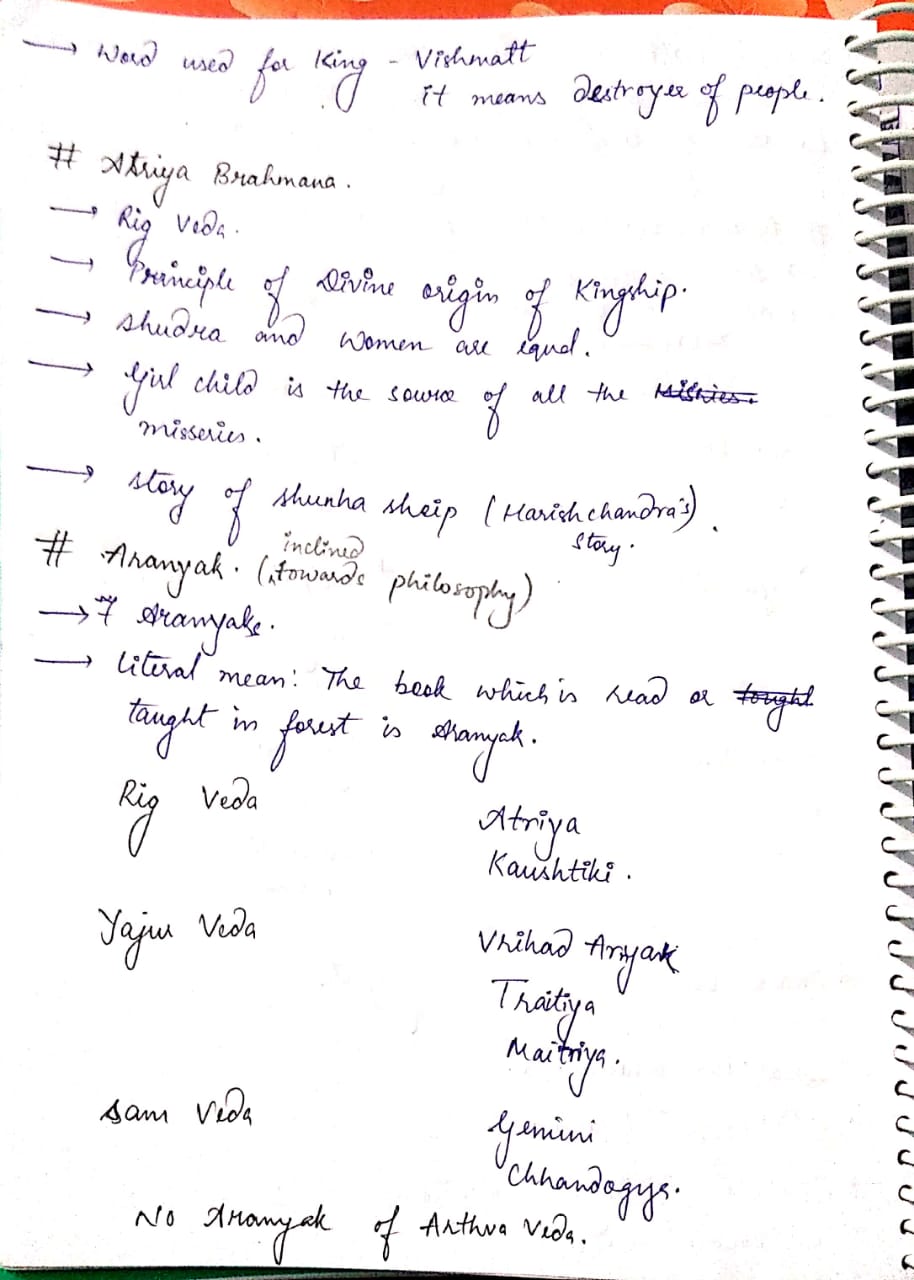 → Word used for King - Vishmatt
it means destroyer of people.
# Atriya Brahmana.
→ Rig Veda.
→ Principle of Divine origin of Kingship.
→ Shudra and women are equal.
→ Girl child is the source of all the Misries.
misseries.
→ Story of Shunha Sheip (Harishchandra's)
story.
# Aranyak. (inclined towards philosophy)
→ 7 Aranyaks.
→ Literal mean: The book which is read or tought
taught in forest is Aranyak.
Rig Veda Atriya
Kaushtiki.
Yajur Veda Vrihad Aryak
Traitiya
Maitriya.
Sam Veda Gemini
Chhandogya.
No Aranyak of Arthva Veda.